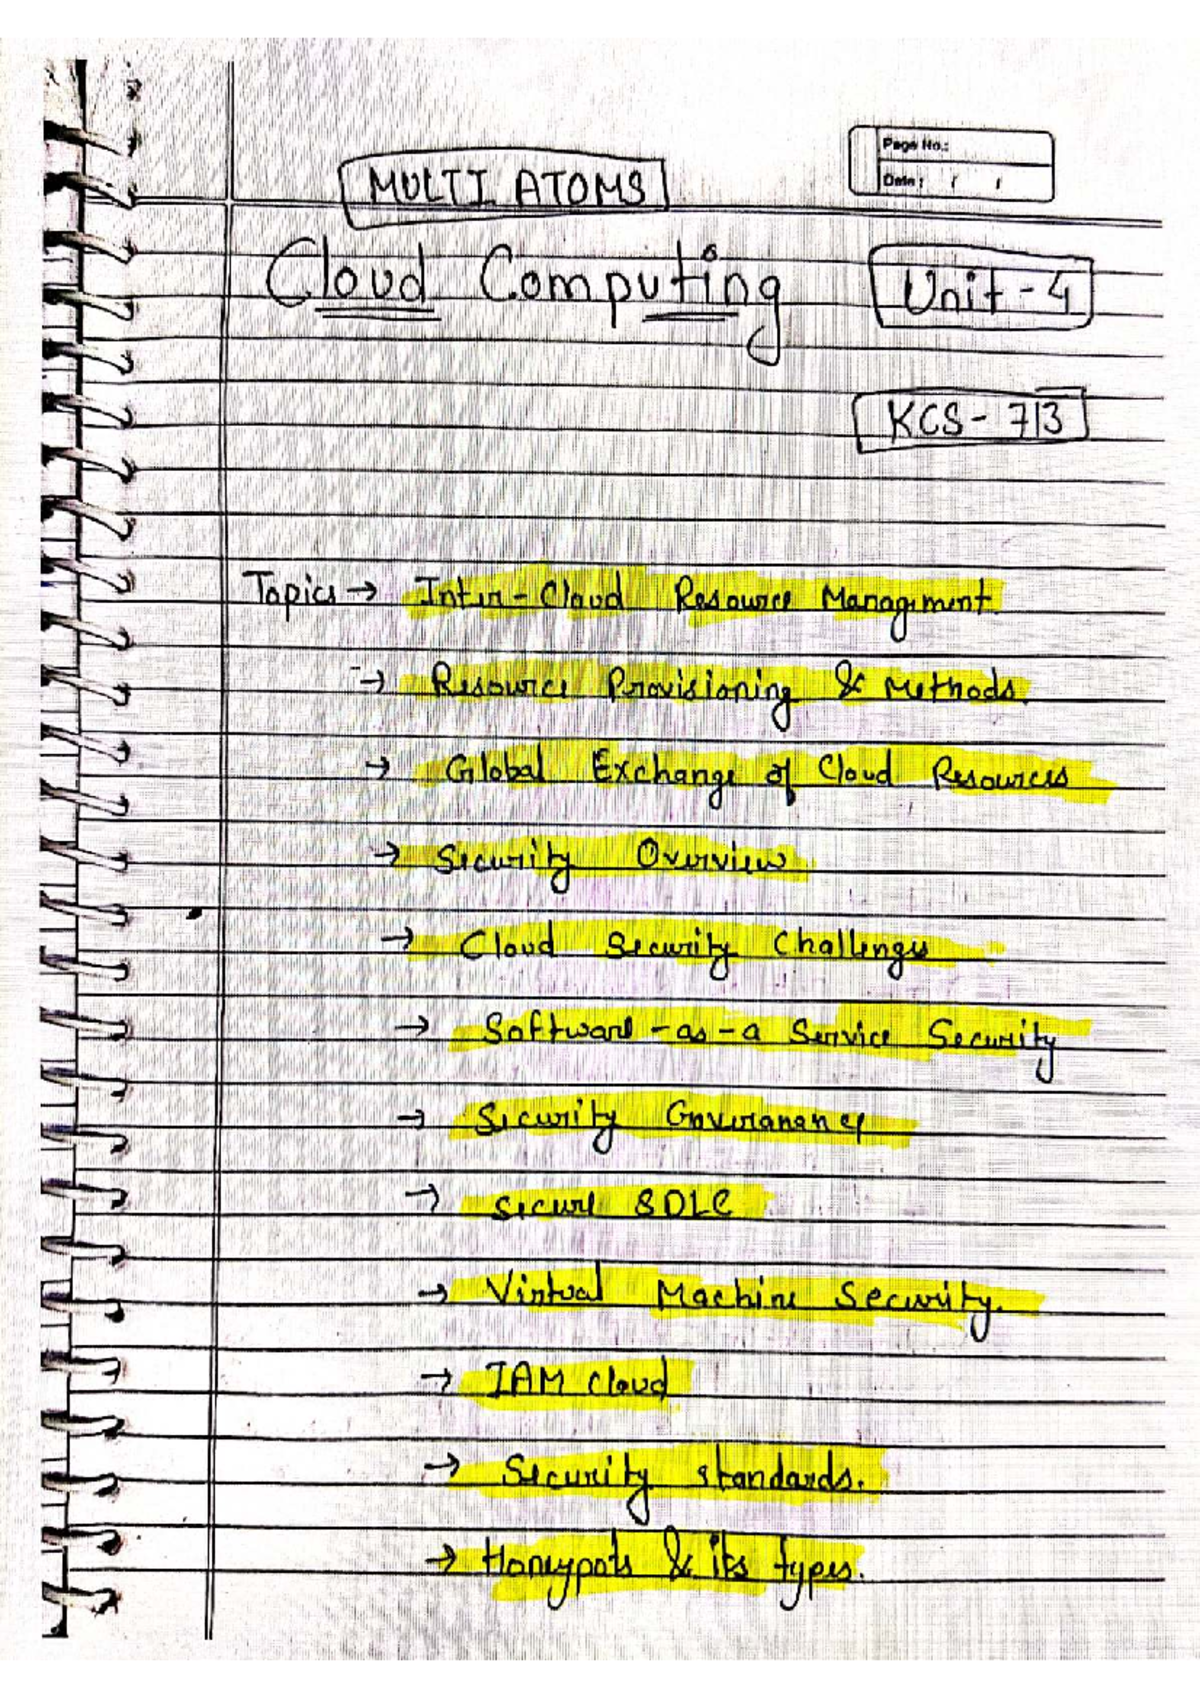 Page No.:
Date: / /
MULTI ATOMS
Cloud Computing Unit-4
KCS-713
Topics → Inter-Cloud Resource Management.
→ Resource Provisioning & Methods.
→ Global Exchange of Cloud Resources
→ Security Overview
→ Cloud Security Challenges
→ Software-as-a Service Security
→ Security Goveranancy
→ Secure SDLC
→ Virtual Machine Security.
→ IAM Cloud
→ Security standards.
→ Honeypots & its types.